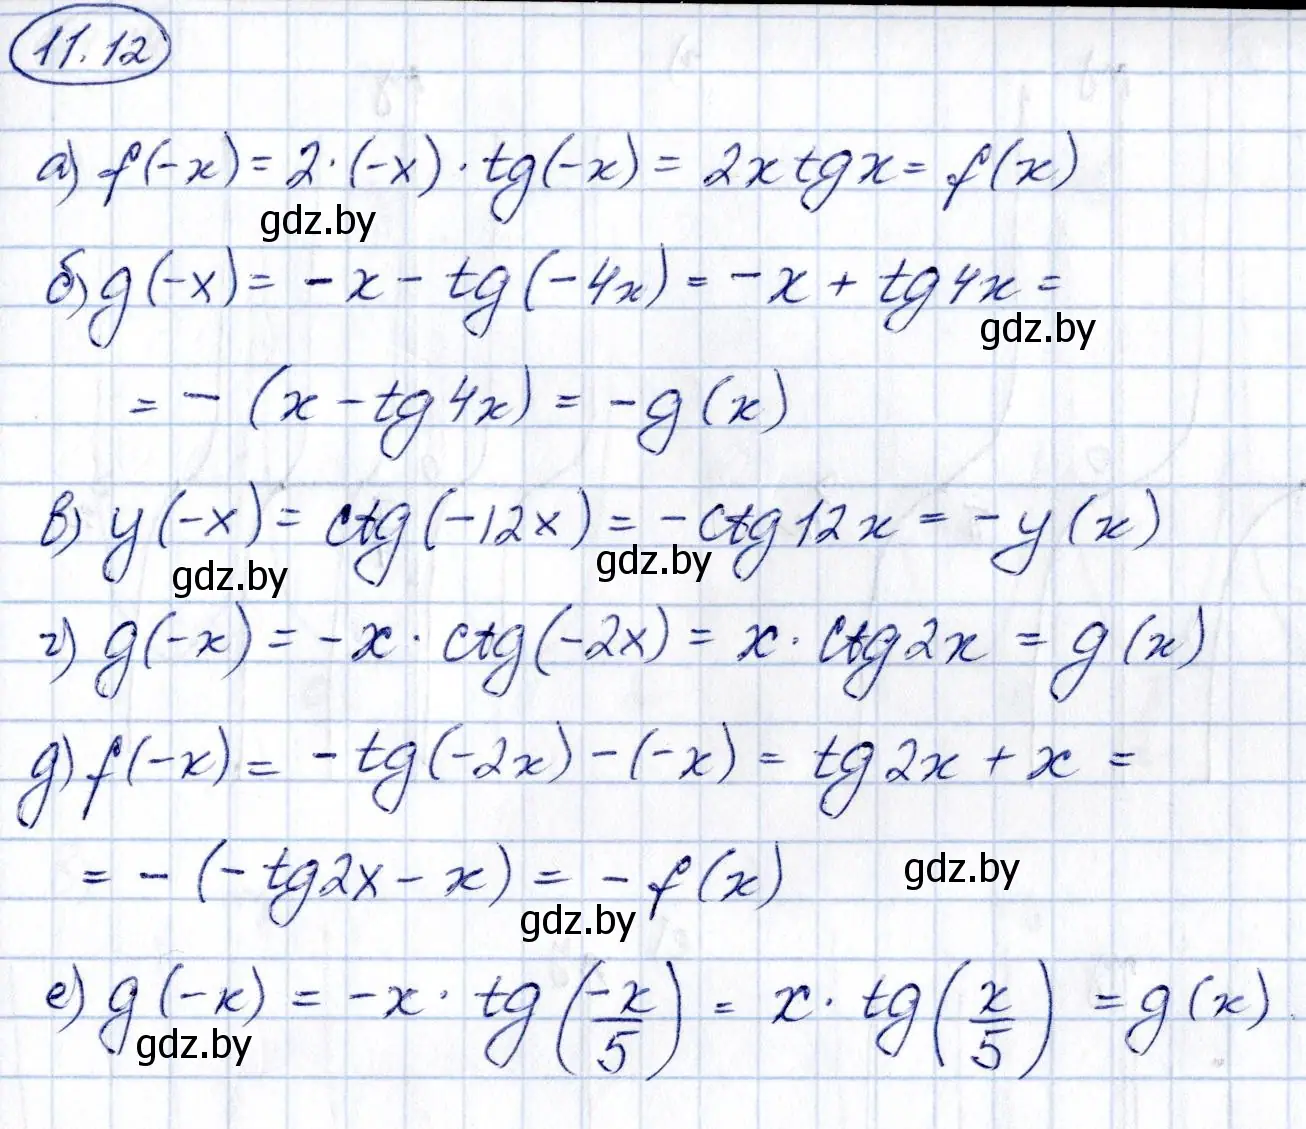 11.12
а) f(-x) = 2·(-x)·tg(-x) = 2x tgx = f(x)
gdz.by
б) g(-x) = -x - tg(-4x) = -x + tg4x =
gdz.by
= -(x - tg4x) = -g(x)
в) y(-x) = ctg(-12x) = -ctg12x = -y(x)
gdz.by gdz.by
г) g(-x) = -x·ctg(-2x) = x·ctg2x = g(x)
д) f(-x) = -tg(-2x) - (-x) = tg2x + x =
= -(-tg2x - x) = -f(x) gdz.by
gdz.by
е) g(-x) = -x·tg(-x/5) = x·tg(x/5) = g(x)
gdz.by